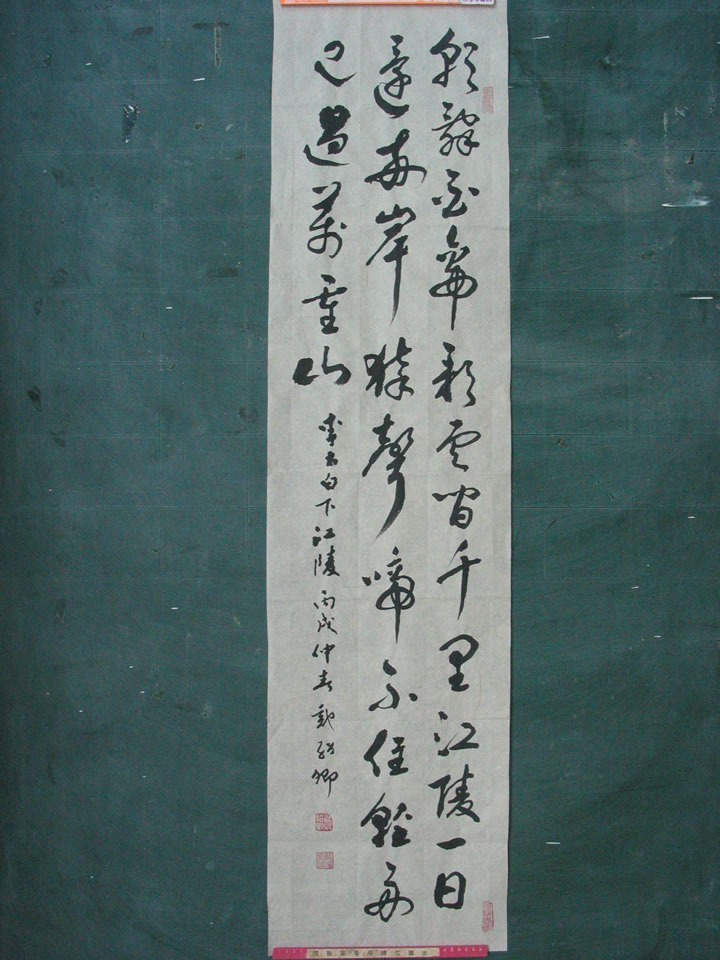 朝辭白帝彩雲間千里江陵一日
還兩岸猿聲啼不住輕舟
已過萬重山
李太白下江陵 丙戌仲春